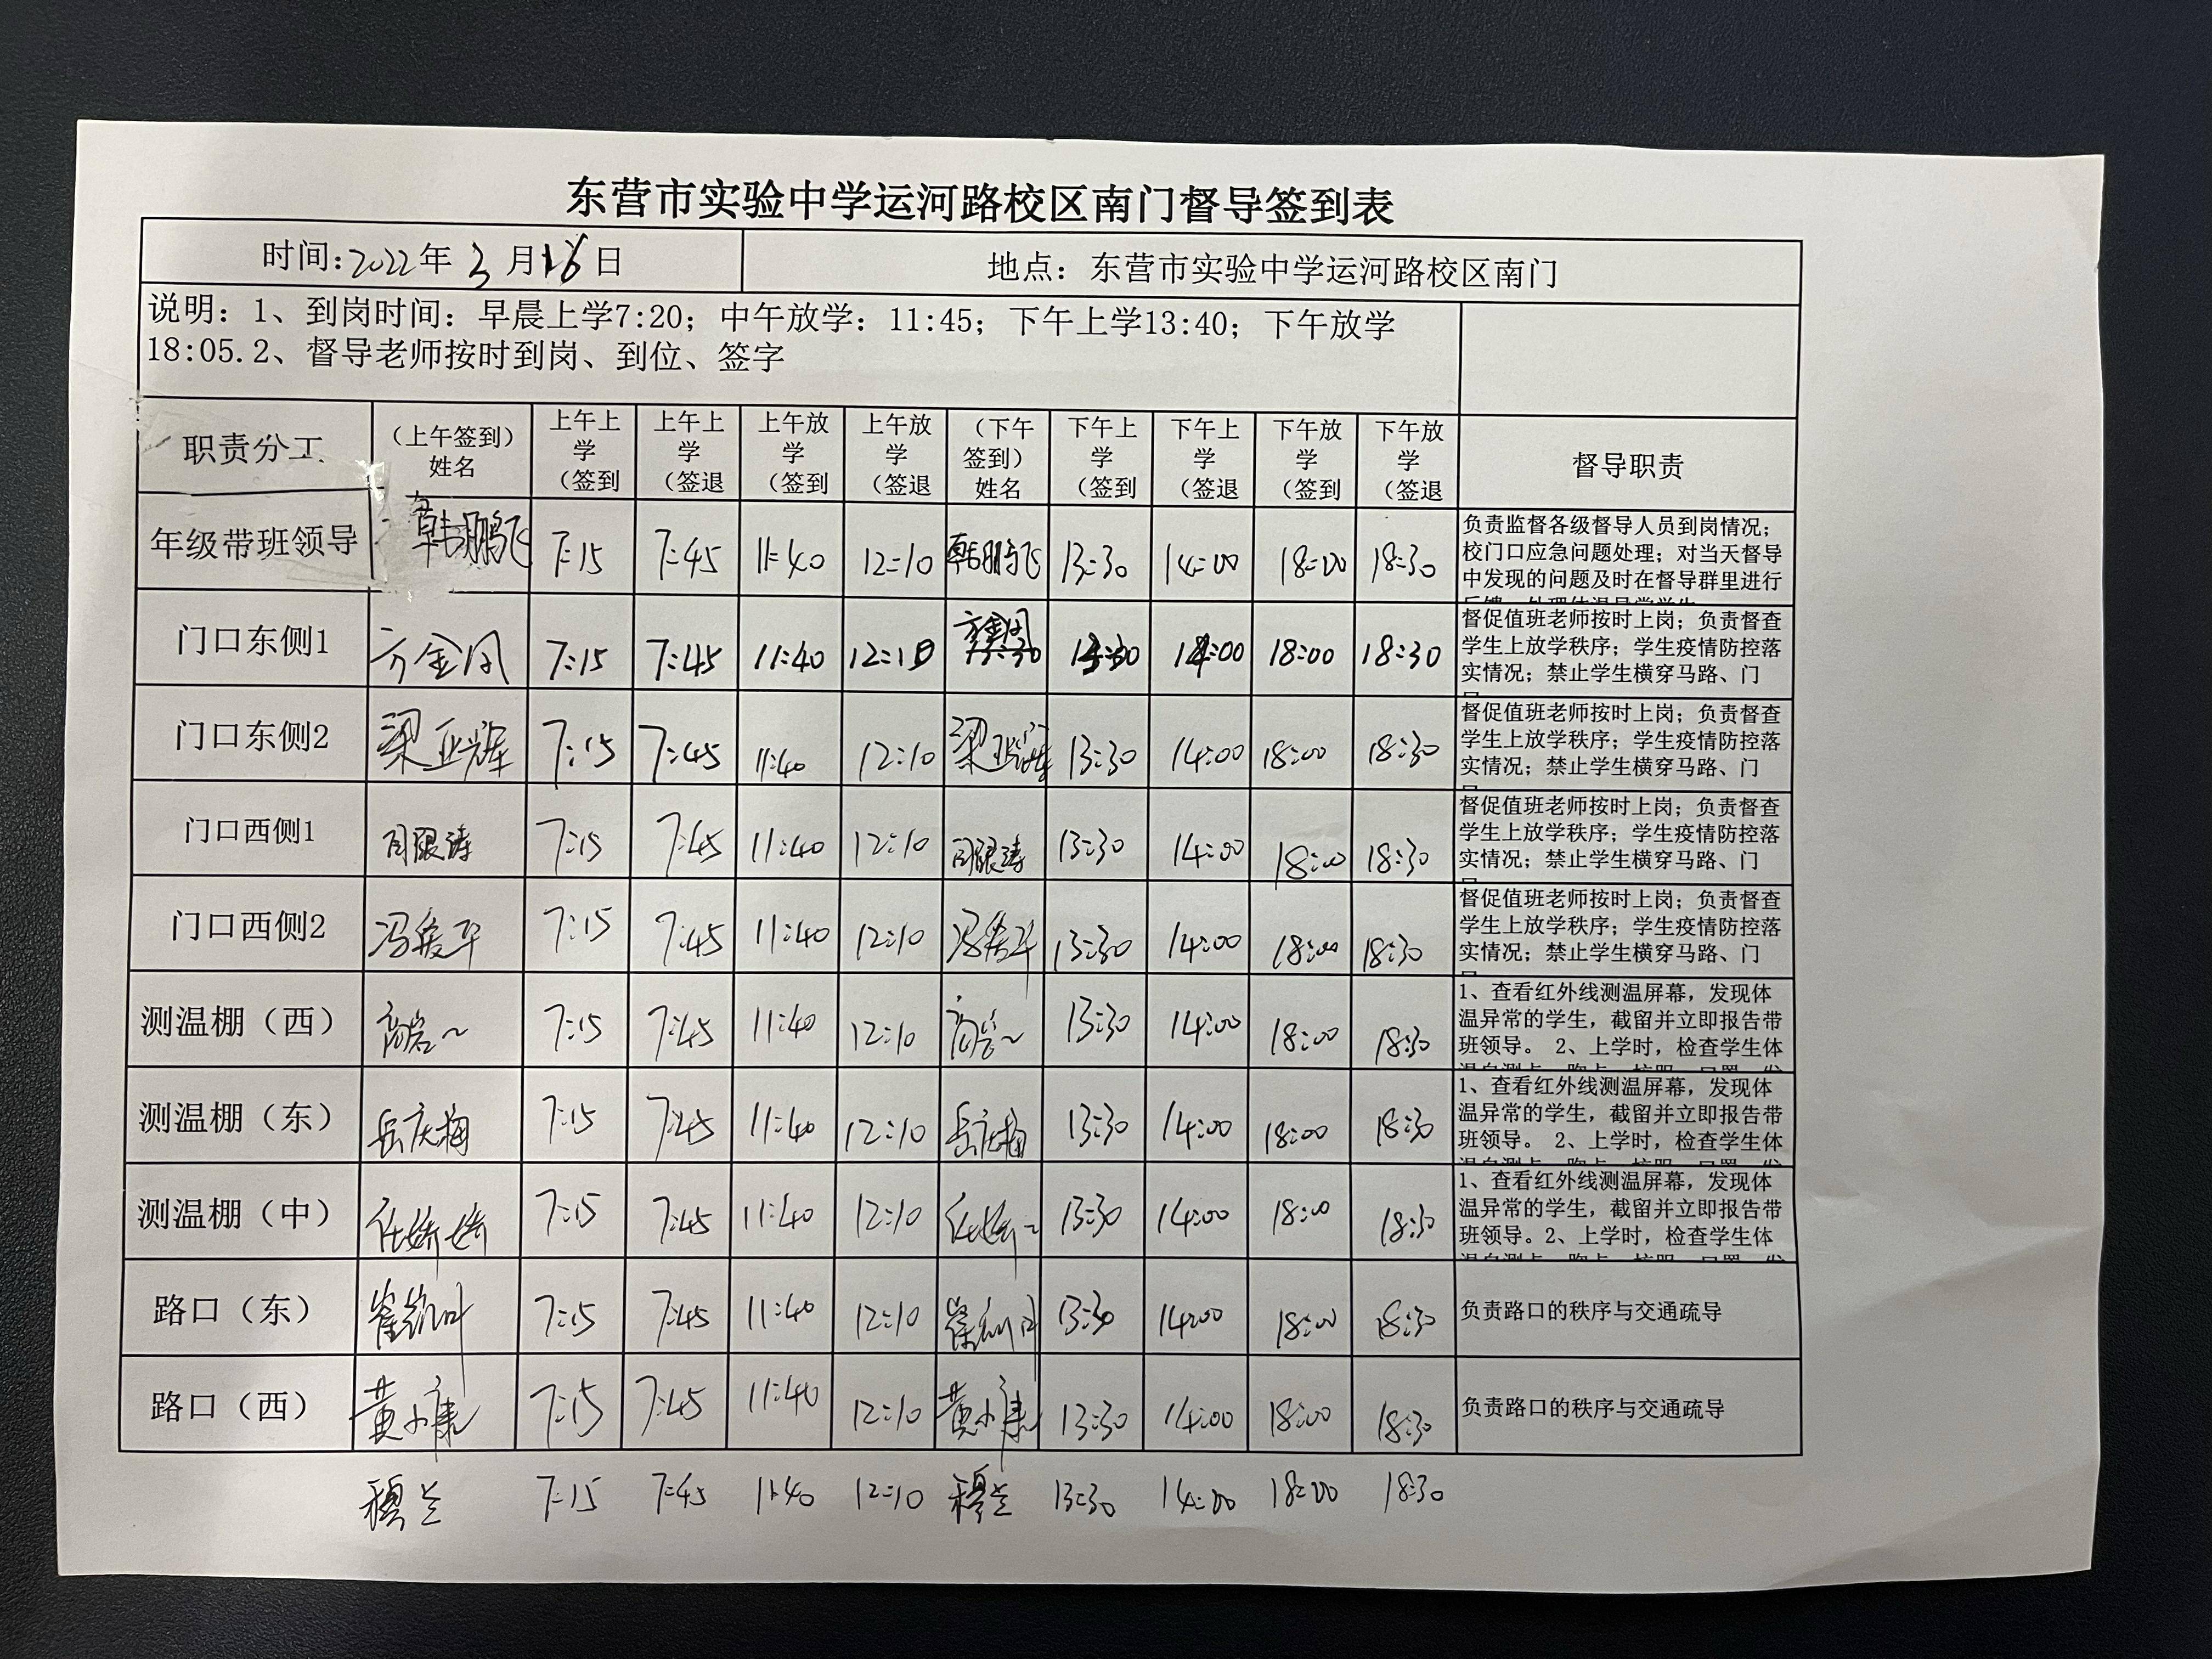 东营市实验中学运河路校区南门督导签到表
时间:2022年 3 月 16 日 地点：东营市实验中学运河路校区南门
说明：1、到岗时间：早晨上学7:20；中午放学：11:45；下午上学13:40；下午放学
18:05.2、督导老师按时到岗、到位、签字
职责分工 （上午签到）姓名 上午上学（签到 上午上学（签退 上午放学（签到 上午放学（签退 （下午签到）姓名 下午上学（签到 下午上学（签退 下午放学（签到 下午放学（签退 督导职责
年级带班领导 韩鹏飞 7:15 7:45 11:40 12:10 韩鹏飞 13:30 14:00 18:00 18:30
负责监督各级督导人员到岗情况；
校门口应急问题处理；对当天督导
中发现的问题及时在督导群里进行
门口东侧1 方金凤 7:15 7:45 11:40 12:10 方金凤 13:30 14:00 18:00 18:30
督促值班老师按时上岗；负责督查
学生上放学秩序；学生疫情防控落
实情况；禁止学生横穿马路、门
门口东侧2 梁亚辉 7:15 7:45 11:40 12:10 梁亚辉 13:30 14:00 18:00 18:30
督促值班老师按时上岗；负责督查
学生上放学秩序；学生疫情防控落
实情况；禁止学生横穿马路、门
门口西侧1 7:15 7:45 11:40 12:10 13:30 14:00 18:00 18:30
督促值班老师按时上岗；负责督查
学生上放学秩序；学生疫情防控落
实情况；禁止学生横穿马路、门
门口西侧2 冯爱平 7:15 7:45 11:40 12:10 冯爱平 13:30 14:00 18:00 18:30
督促值班老师按时上岗；负责督查
学生上放学秩序；学生疫情防控落
实情况；禁止学生横穿马路、门
测温棚（西） 7:15 7:45 11:40 12:10 13:30 14:00 18:00 18:30
1、查看红外线测温屏幕，发现体
温异常的学生，截留并立即报告带
班领导。 2、上学时，检查学生体
测温棚（东） 岳庆梅 7:15 7:45 11:40 12:10 岳庆梅 13:30 14:00 18:00 18:30
1、查看红外线测温屏幕，发现体
温异常的学生，截留并立即报告带
班领导。 2、上学时，检查学生体
测温棚（中） 任娇娇 7:15 7:45 11:40 12:10 13:30 14:00 18:00 18:30
1、查看红外线测温屏幕，发现体
温异常的学生，截留并立即报告带
班领导。2、上学时，检查学生体
路口（东） 7:15 7:45 11:40 12:10 13:30 14:00 18:00 18:30 负责路口的秩序与交通疏导
路口（西） 黄小康 7:15 7:45 11:40 12:10 黄小康 13:30 14:00 18:00 18:30 负责路口的秩序与交通疏导
穆兰 7:15 7:45 11:40 12:10 穆兰 13:30 14:00 18:00 18:30